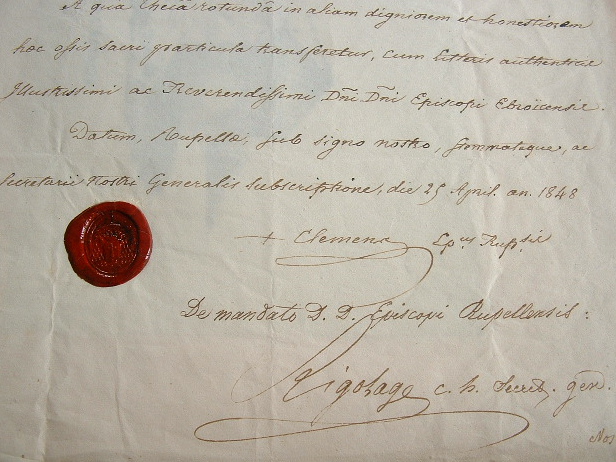 A qua thecâ rotundâ in aliam digniorem et honestiorem
hoc ossis sacri particula transferetur, cum litteris authenticæ
Illustrissimi ac Reverendissimi Dñi Dñi Episcopi Ebroïcensis.
Datum, Rupellæ, sub signo nostro, stemmateque, ac
Secretarii nostri Generalis subscriptione, die 25 April. an. 1848
+ Clemens Epus Rupsis
De mandato D. D. Episcopi Rupellensis:
c. h. Secret. gen.